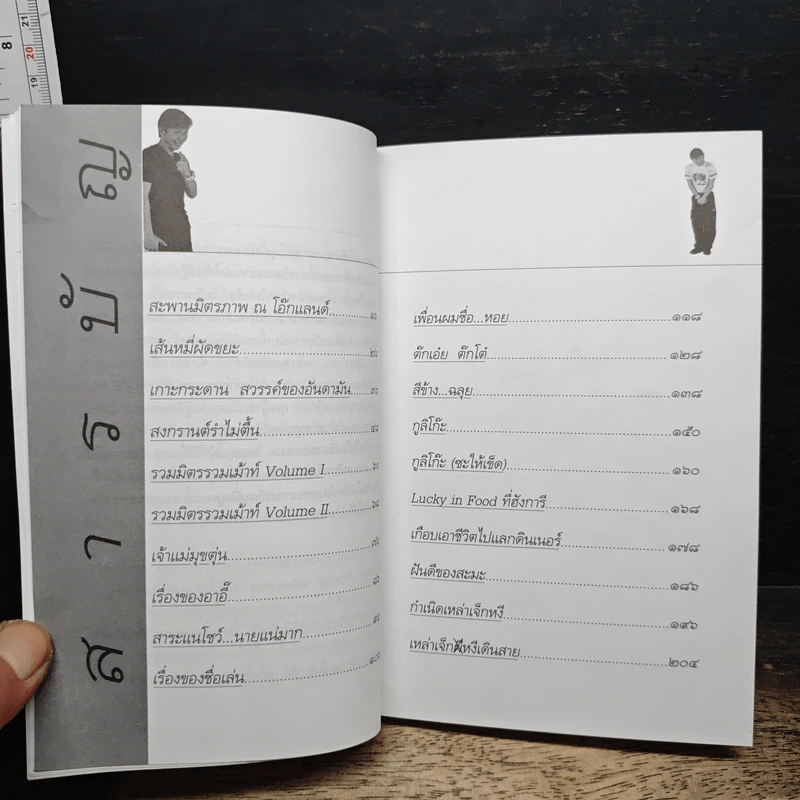 สารบัญ
สะพานมิตรภาพ ณ โอ๊กแลนด์..........๑๖
เส้นหมี่ผัดขยะ..........๒๖
เกาะกระดาน สวรรค์ของอันดามัน..........๓๖
สงกรานต์รำไม่ตื้น..........๔๘
รวมมิตรรวมเม้าท์ Volume I..........๖๐
รวมมิตรรวมเม้าท์ Volume II..........๖๘
เจ้าแม่มุขตุ่น..........๗๖
เรื่องของอาอี๊..........๘๖
สาระแนโชว์...นายแน่มาก..........
เรื่องของชื่อเล่น..........๑๐๖
เพื่อนผมชื่อ...หอย..........๑๑๘
ต๊กเอ๋ย ต๊กโต๋..........๑๒๘
สีข้าง...ฉลุย..........๑๓๘
กูลิโก๊ะ..........๑๕๐
กูลิโก๊ะ (ซะให้เข็ด)..........๑๖๐
Lucky in Food ที่ฮังการี..........๑๖๘
เกือบเอาชีวิตไปแลกดินเนอร์..........๑๗๘
ฝันดีของสะมะ..........๑๘๖
กำเนิดเหล่าเจ็กหงี..........๑๙๖
เหล่าเจ็กหงีเดินสาย..........๒๐๔
8
21
20
19